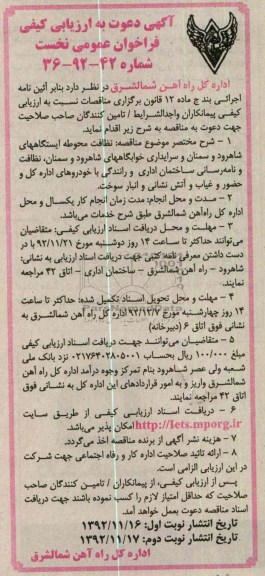 آگهی دعوت به ارزیابی کیفی
فراخوان عمومی نخست
شماره ۴۲-۹۲-۳۶
اداره کل راه آهن شمالشرق در نظر دارد بنابر آئین نامه
اجرائی بند ج ماده ۱۲ قانون برگزاری مناقصات نسبت به ارزیابی
کیفی پیمانکاران واجدالشرایط / تامین کنندگان صاحب صلاحیت
جهت دعوت به مناقصه به شرح زیر اقدام نماید.
۱ - شرح مختصر موضوع مناقصه: نظافت محوطه ایستگاههای
شاهرود و سمنان و سرایداری خوابگاههای شاهرود و سمنان، نظافت
و نامه‌رسانی ساختمان اداری و رانندگی با خودروهای اداره کل و
حضور و غیاب و آتش نشانی و انبار سوخت.
۲ - مدت و محل انجام: مدت زمان انجام کار یکسال و محل
اداره کل راه‌آهن شمالشرق طبق شرح خدمات می‌باشد.
۳ - مهلت و محل دریافت اسناد ارزیابی کیفی: متقاضیان
می‌توانند حداکثر تا ساعت ۱۴ روز دوشنبه مورخ ۹۲/۱۱/۲۱ با در
دست داشتن معرفی نامه کتبی جهت دریافت اسناد ارزیابی به نشانی:
شاهرود - راه آهن شمالشرق - ساختمان اداری - اتاق ۴۲ مراجعه
نمایند.
۴ - مهلت و محل تحویل اسناد تکمیل شده: حداکثر تا ساعت
۱۴ روز چهارشنبه مورخ ۹۲/۱۲/۷ اداره کل راه آهن شمالشرق به
نشانی فوق اتاق ۶ (دبیرخانه)
۵ - متقاضیان می‌توانند جهت دریافت اسناد ارزیابی کیفی
مبلغ ۱۰۰/۰۰۰ ریال بحساب ۰۲۱۷۶۴۰۲۸۰۵۰۰۱ نزد بانک ملی
شعبه ولی عصر شاهرود بنام تمرکز وجوه درآمد اداره کل راه آهن
شمالشرق واریز و به امور قراردادهای این اداره کل به نشانی فوق
اتاق ۴۲ مراجعه نمایند.
۶ - دریافت اسناد ارزیابی کیفی از طریق سایت
http://Iets.mporg.ir امکان پذیر می‌باشد.
۷ - هزینه نشر آگهی از برنده مناقصه اخذ می‌گردد.
۸ - ارائه تائید صلاحیت اداره کار و رفاه اجتماعی جهت شرکت
در این ارزیابی الزامی است.
پس از ارزیابی کیفی، از پیمانکاران / تامین کنندگان صاحب
صلاحیت که حداقل امتیاز لازم را کسب نموده باشند جهت دریافت
اسناد مناقصه دعوت بعمل خواهد آمد.
تاریخ انتشار نوبت اول: ۱۳۹۲/۱۱/۱۶
تاریخ انتشار نوبت دوم: ۱۳۹۲/۱۱/۱۷
اداره کل راه آهن شمالشرق